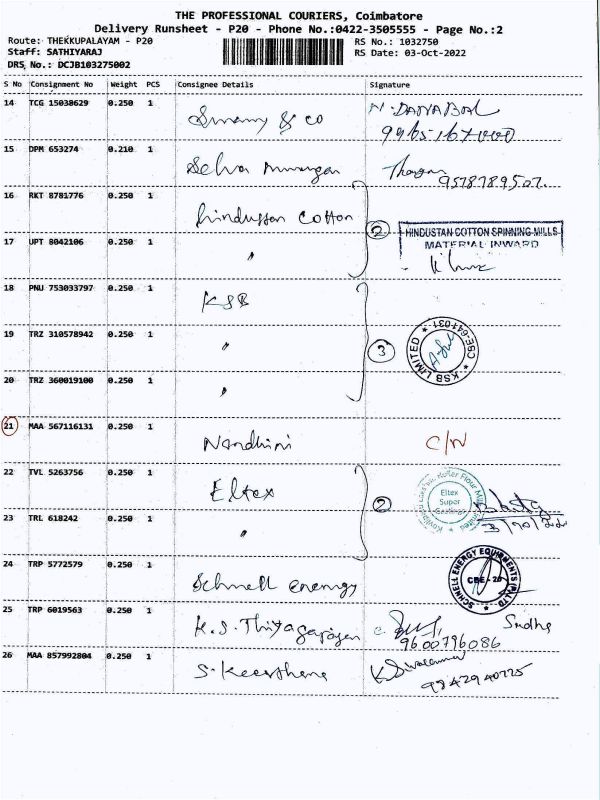 THE PROFESSIONAL COURIERS, Coimbatore
Delivery Runsheet - P20 - Phone No.:0422-3505555 - Page No.:2
Route: THEKKUPALAYAM - P20
Staff: SATHIYARAJ
DRS No.: DCJB103275002
RS No.: 1032750
RS Date: 03-Oct-2022
S No Consignment No Weight PCS Consignee Details Signature
14 TCG 15038629 0.250 1 Swamy & co N. DANABAL
15 DPM 653274 0.210 1 Selva Murugan 9578789507
16 RKT 8781776 0.250 1 hindustan Cotton
2 HINDUSTAN COTTON SPINNING MILLS
MATERIAL INWARD
17 UPT 8042106 0.250 1 "
18 PNU 753033797 0.250 1 KSB
19 TRZ 310578942 0.250 1 " 3 KSB LIMITED ★ CBE-641031 ★
20 TRZ 360019100 0.250 1 "
21 MAA 567116131 0.250 1 Nandhini C/N
22 TVL 5263756 0.250 1 Eltex 2 Eltex
Super
23 TRL 618242 0.250 1 "
24 TRP 5772579 0.250 1 Schnell energy SCHNELL ENERGY EQUIPMENTS (P) LTD CBE - 20
25 TRP 6019563 0.250 1 K.S. Thiyagarajan Sudha
9600796086
26 MAA 857992804 0.250 1 S. Keerthana
9842940725